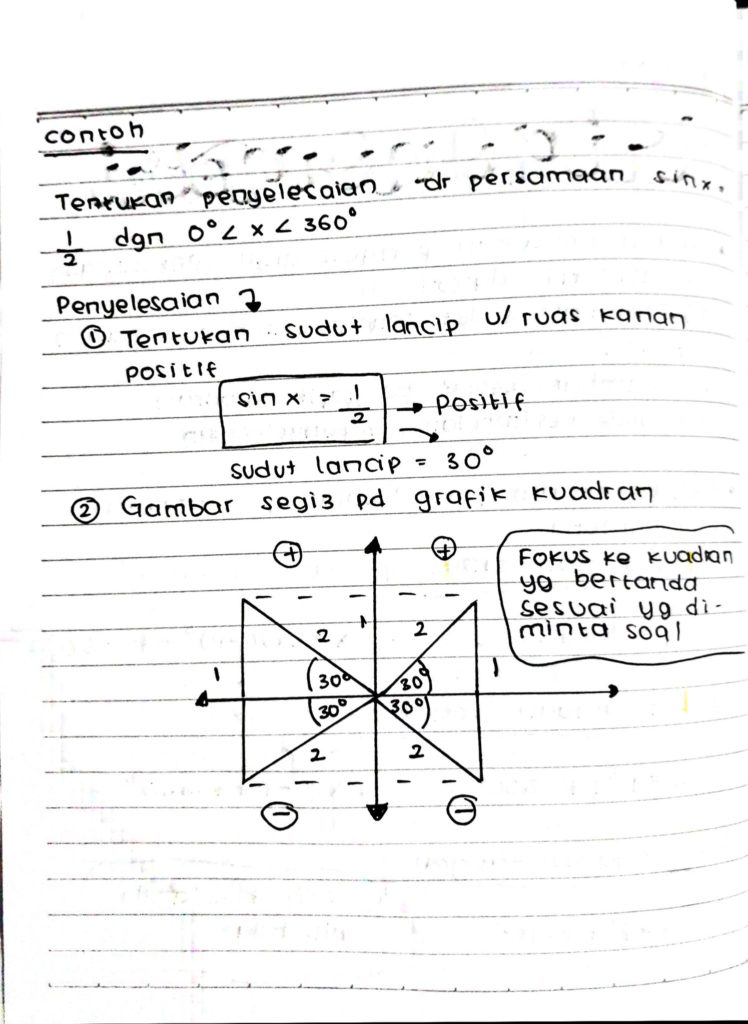 contoh
Tentukan penyelesaian dr persamaan sin x.
1/2 dgn 0° < x < 360°
Penyelesaian
① Tentukan sudut lancip u/ ruas kanan
positif
sin x = 1/2 → positif
sudut lancip = 30°
② Gambar segi3 pd grafik kuadran
+ +
Fokus ke kuadran
yg bertanda
sesuai yg di-
minta soal
2 1 2
1 30° 30° 1
30° 30°
2 2
- -